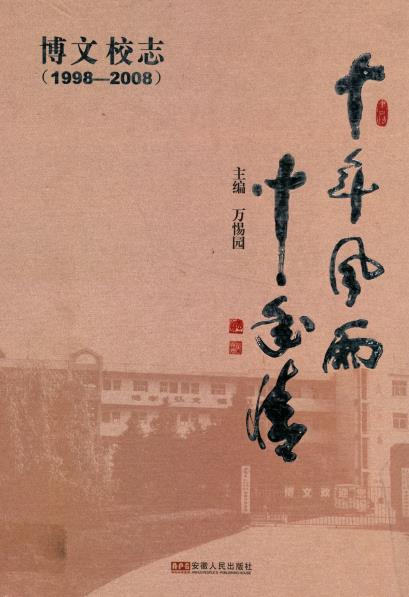 博文校志
（1998—2008）
十年风雨
十年情
主编 万惕园
博文欢迎您
APG 安徽人民出版社
ANHUI PEOPLE'S PUBLISHING HOUSE